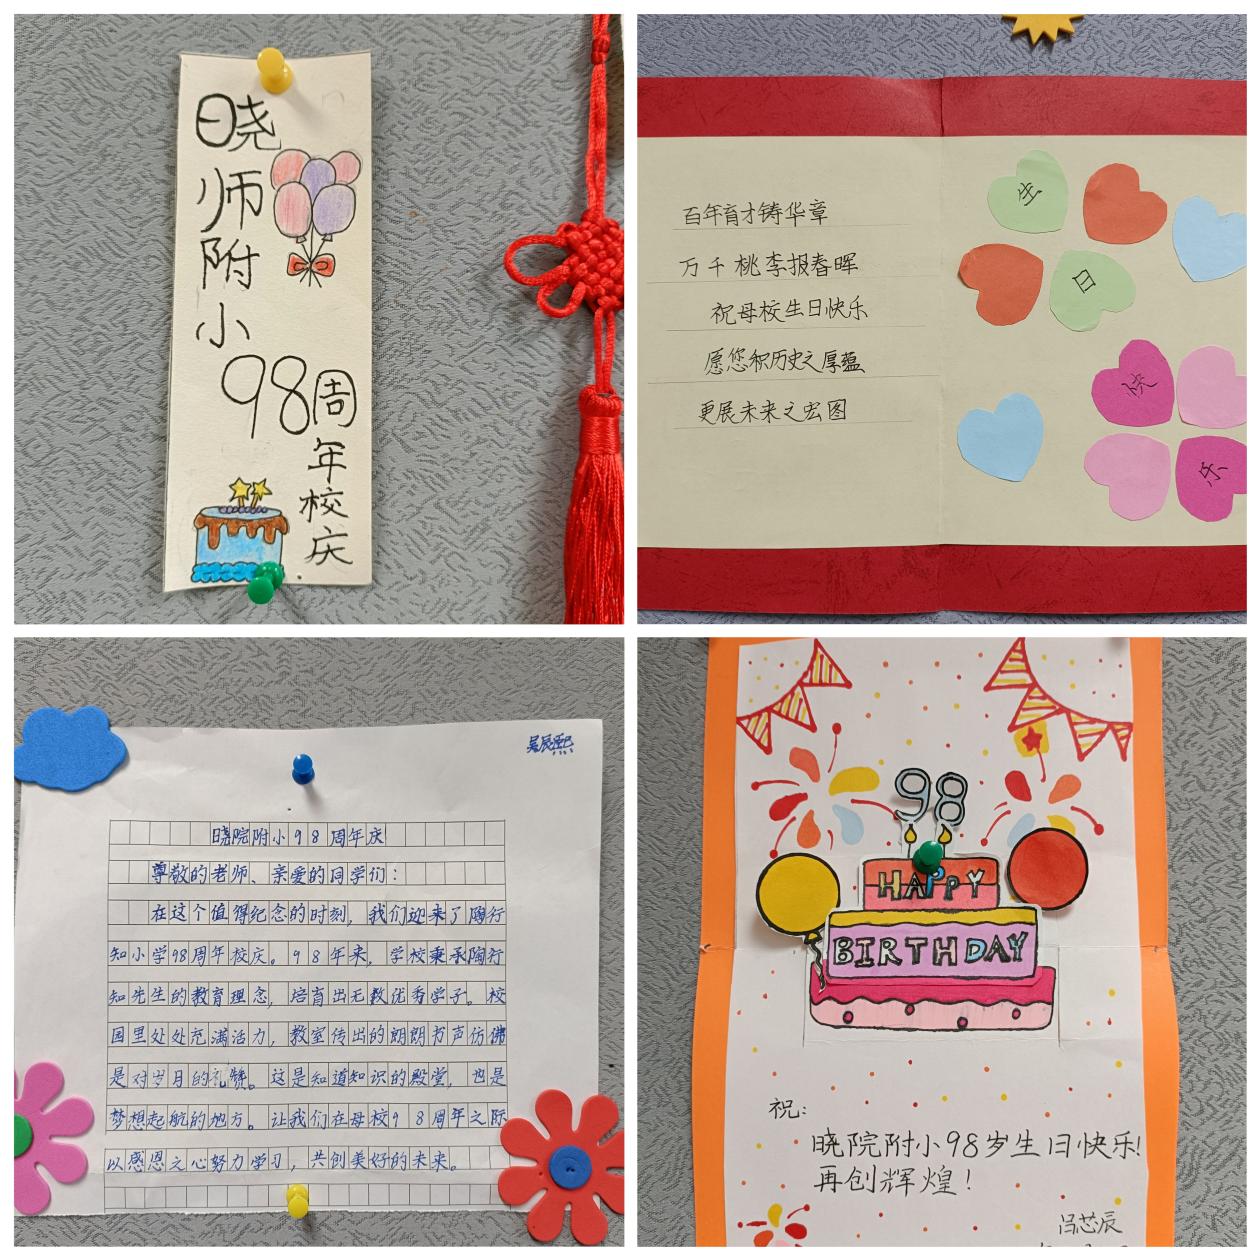 晓
师
附
小
98周
年
校
庆
百年育才铸华章
万千桃李报春晖
祝母校生日快乐
愿您积历史之厚蕴
更展未来之宏图
生
日
快
乐
吴辰熙
晓院附小98周年庆
尊敬的老师、亲爱的同学们：
在这个值得纪念的时刻，我们迎来了陶行
知小学98周年校庆。98年来，学校秉承陶行
知先生的教育理念，培育出无数优秀学子。校
园里处处充满活力，教室传出的朗朗书声仿佛
是对岁月的礼赞。这是知道知识的殿堂，也是
梦想起航的地方。让我们在母校98周年之际
以感恩之心努力学习，共创美好的未来。
98
HAPPY
BIRTHDAY
祝：
晓院附小98岁生日快乐！
再创辉煌！
吕芯辰